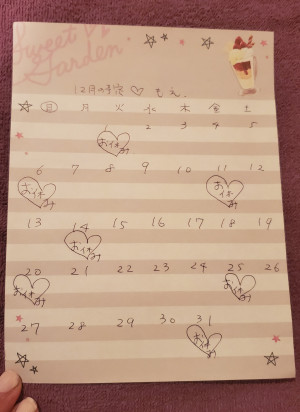 Sweet
Garden
12月の予定♡もえ
日 月 火 水 木 金 土
1 2 3 4 5
お休み
6 7 8 9 10 11 12
お休み お休み
13 14 15 16 17 18 19
お休み
20 21 22 23 24 25 26
お休み お休み
27 28 29 30 31
お休み